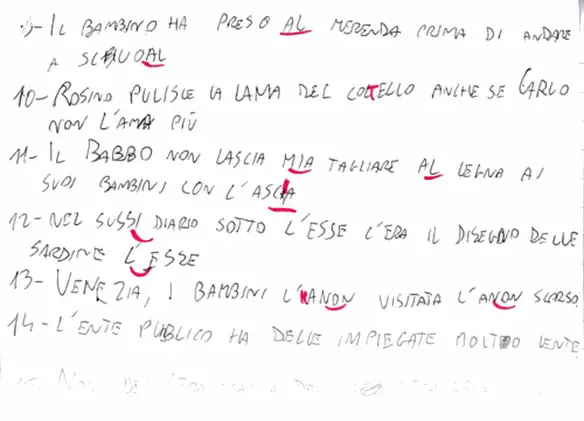 9- IL BAMBINO HA PRESO AL MERENDA PRIMA DI ANDARE
A SCAUOAL
10- ROSINO PULISCE LA LAMA DEL COLTELLO ANCHE SE CARLO
NON L'AMA PIÙ
11- IL BABBO NON LASCIA MIA TAGLIARE AL LEGNA AI
SUOI BAMBINI CON L'ASCIA
12- NEL SUSSI DIARIO SOTTO L'ESSE C'ERA IL DISEGNO DELLE
SARDINE L'ESSE
13- VENEZIA, I BAMBINI L'ANON VISITATA L'ANON SCORSO
14- L'ENTE PUBLICO HA DELLE IMPIEGATE MOLTO LENTE